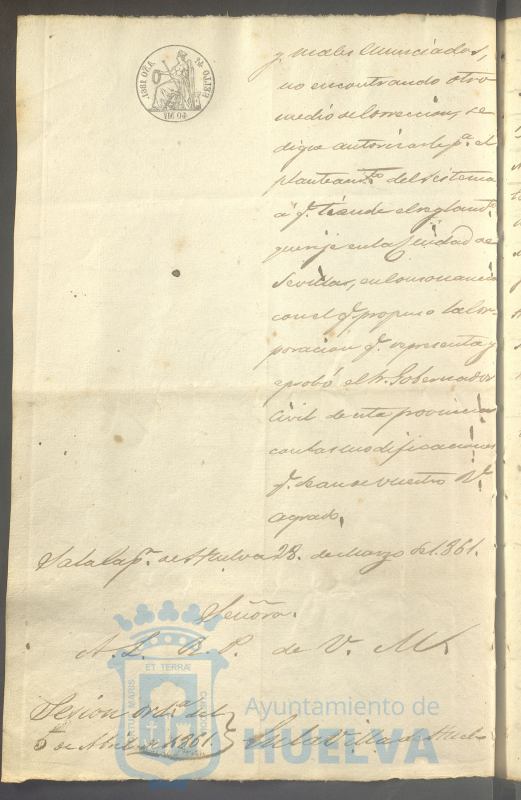 y males enunciados,
no encontrando otro
medio de correccion, se
digne autorizarle pª. el
planteamtº. del sistema
á q. tiende el reglamtº.
que rije en la Ciudad de
Sevilla, en consonancia
con el q. propuso la Cor-
poracion q. representa y
aprobó el Sr. Gobernador
Civil de esta provincia
con las modificaciones
q. sean de vuestro Rl.
agrado.
Sala Capr. de Huelva 28. de Marzo de 1.861.
Señora.
A. L. R. P. de V. M.
Sesion ordª. del
5 de Abril de 1861.
En la Villa de Huel-
Ayuntamiento de
HUELVA